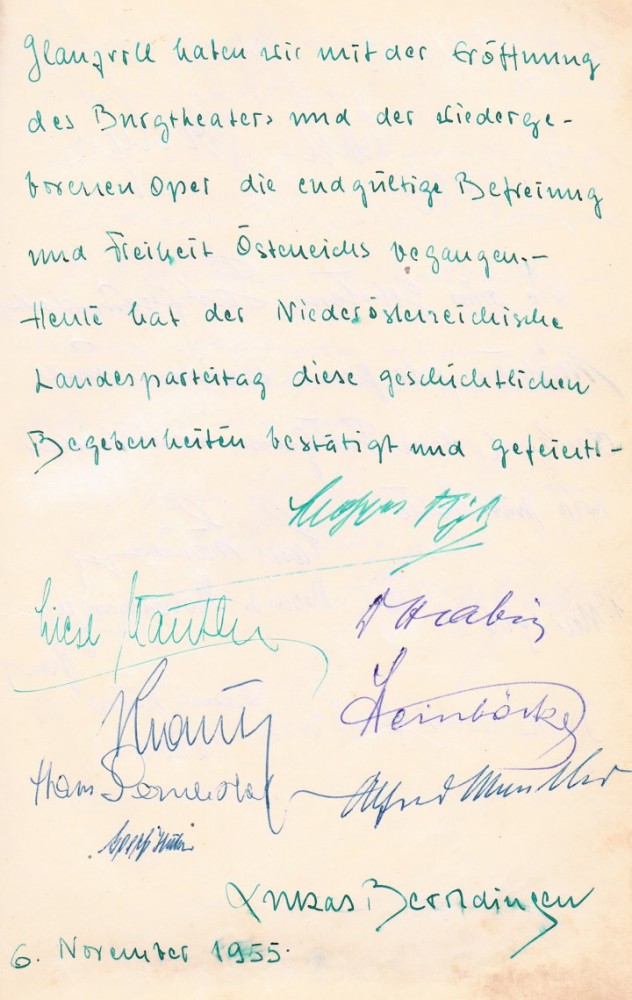 Glanzvoll haben wir mit der Eröffnung
des Burgtheaters und der wiederge-
borenen Oper die endgültige Befreiung
und Freiheit Österreichs begangen.-
Heute hat der Niederösterreichische
Landesparteitag diese geschichtlichen
Begebenheiten bestätigt und gefeiert-
Liesl
Hans
Alfred
Lukas
6. November 1955.